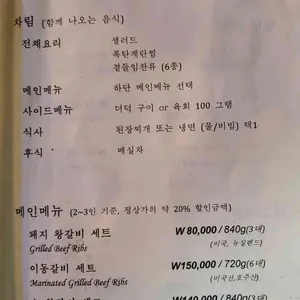 차림 (함께 나오는 음식)
전채요리 샐러드
폭탄계란찜
곁들임찬류 (6종)
메인메뉴 하단 메인메뉴 선택
사이드메뉴 더덕 구이 or 육회 100 그램
식사 된장찌개 또는 냉면 (물/비빔) 택1
후식 매실차
메인메뉴 (2~3인 기준, 정상가의 약 20% 할인금액)
돼지 왕갈비 세트 ₩ 80,000 / 840g(3대)
Grilled Beef Ribs (미국, 뉴질랜드)
이동갈비 세트 ₩150,000 / 720g(6대)
Marinated Grilled Beef Ribs (미국산,호주산)
₩140,000 / 840g(3대)